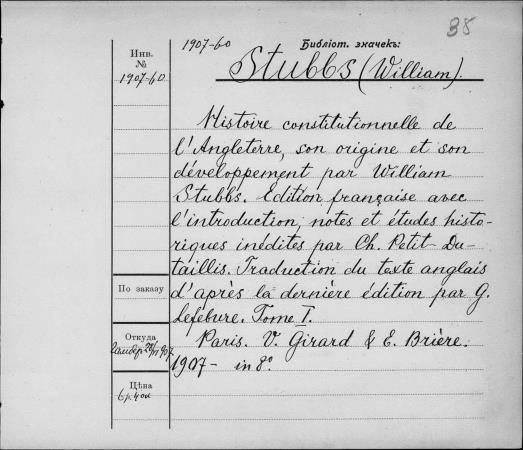 38
1907-60
Библіот. значекъ:
Инв.
№
1907-60
Stubbs (William).
Histoire constitutionnelle de
l'Angleterre, son origine et son
développement par William
Stubbs. Edition française avec
l'introduction, notes et études histo-
riques inédites par Ch. Petit-Du-
taillis. Traduction du texte anglais
d'après la dernière édition par G.
Lefébure. Tome I.
Paris. V. Girard & E. Brière.
1907- in 8º.
По заказу
Откуда
1907
Цѣна
6 р. 40 к